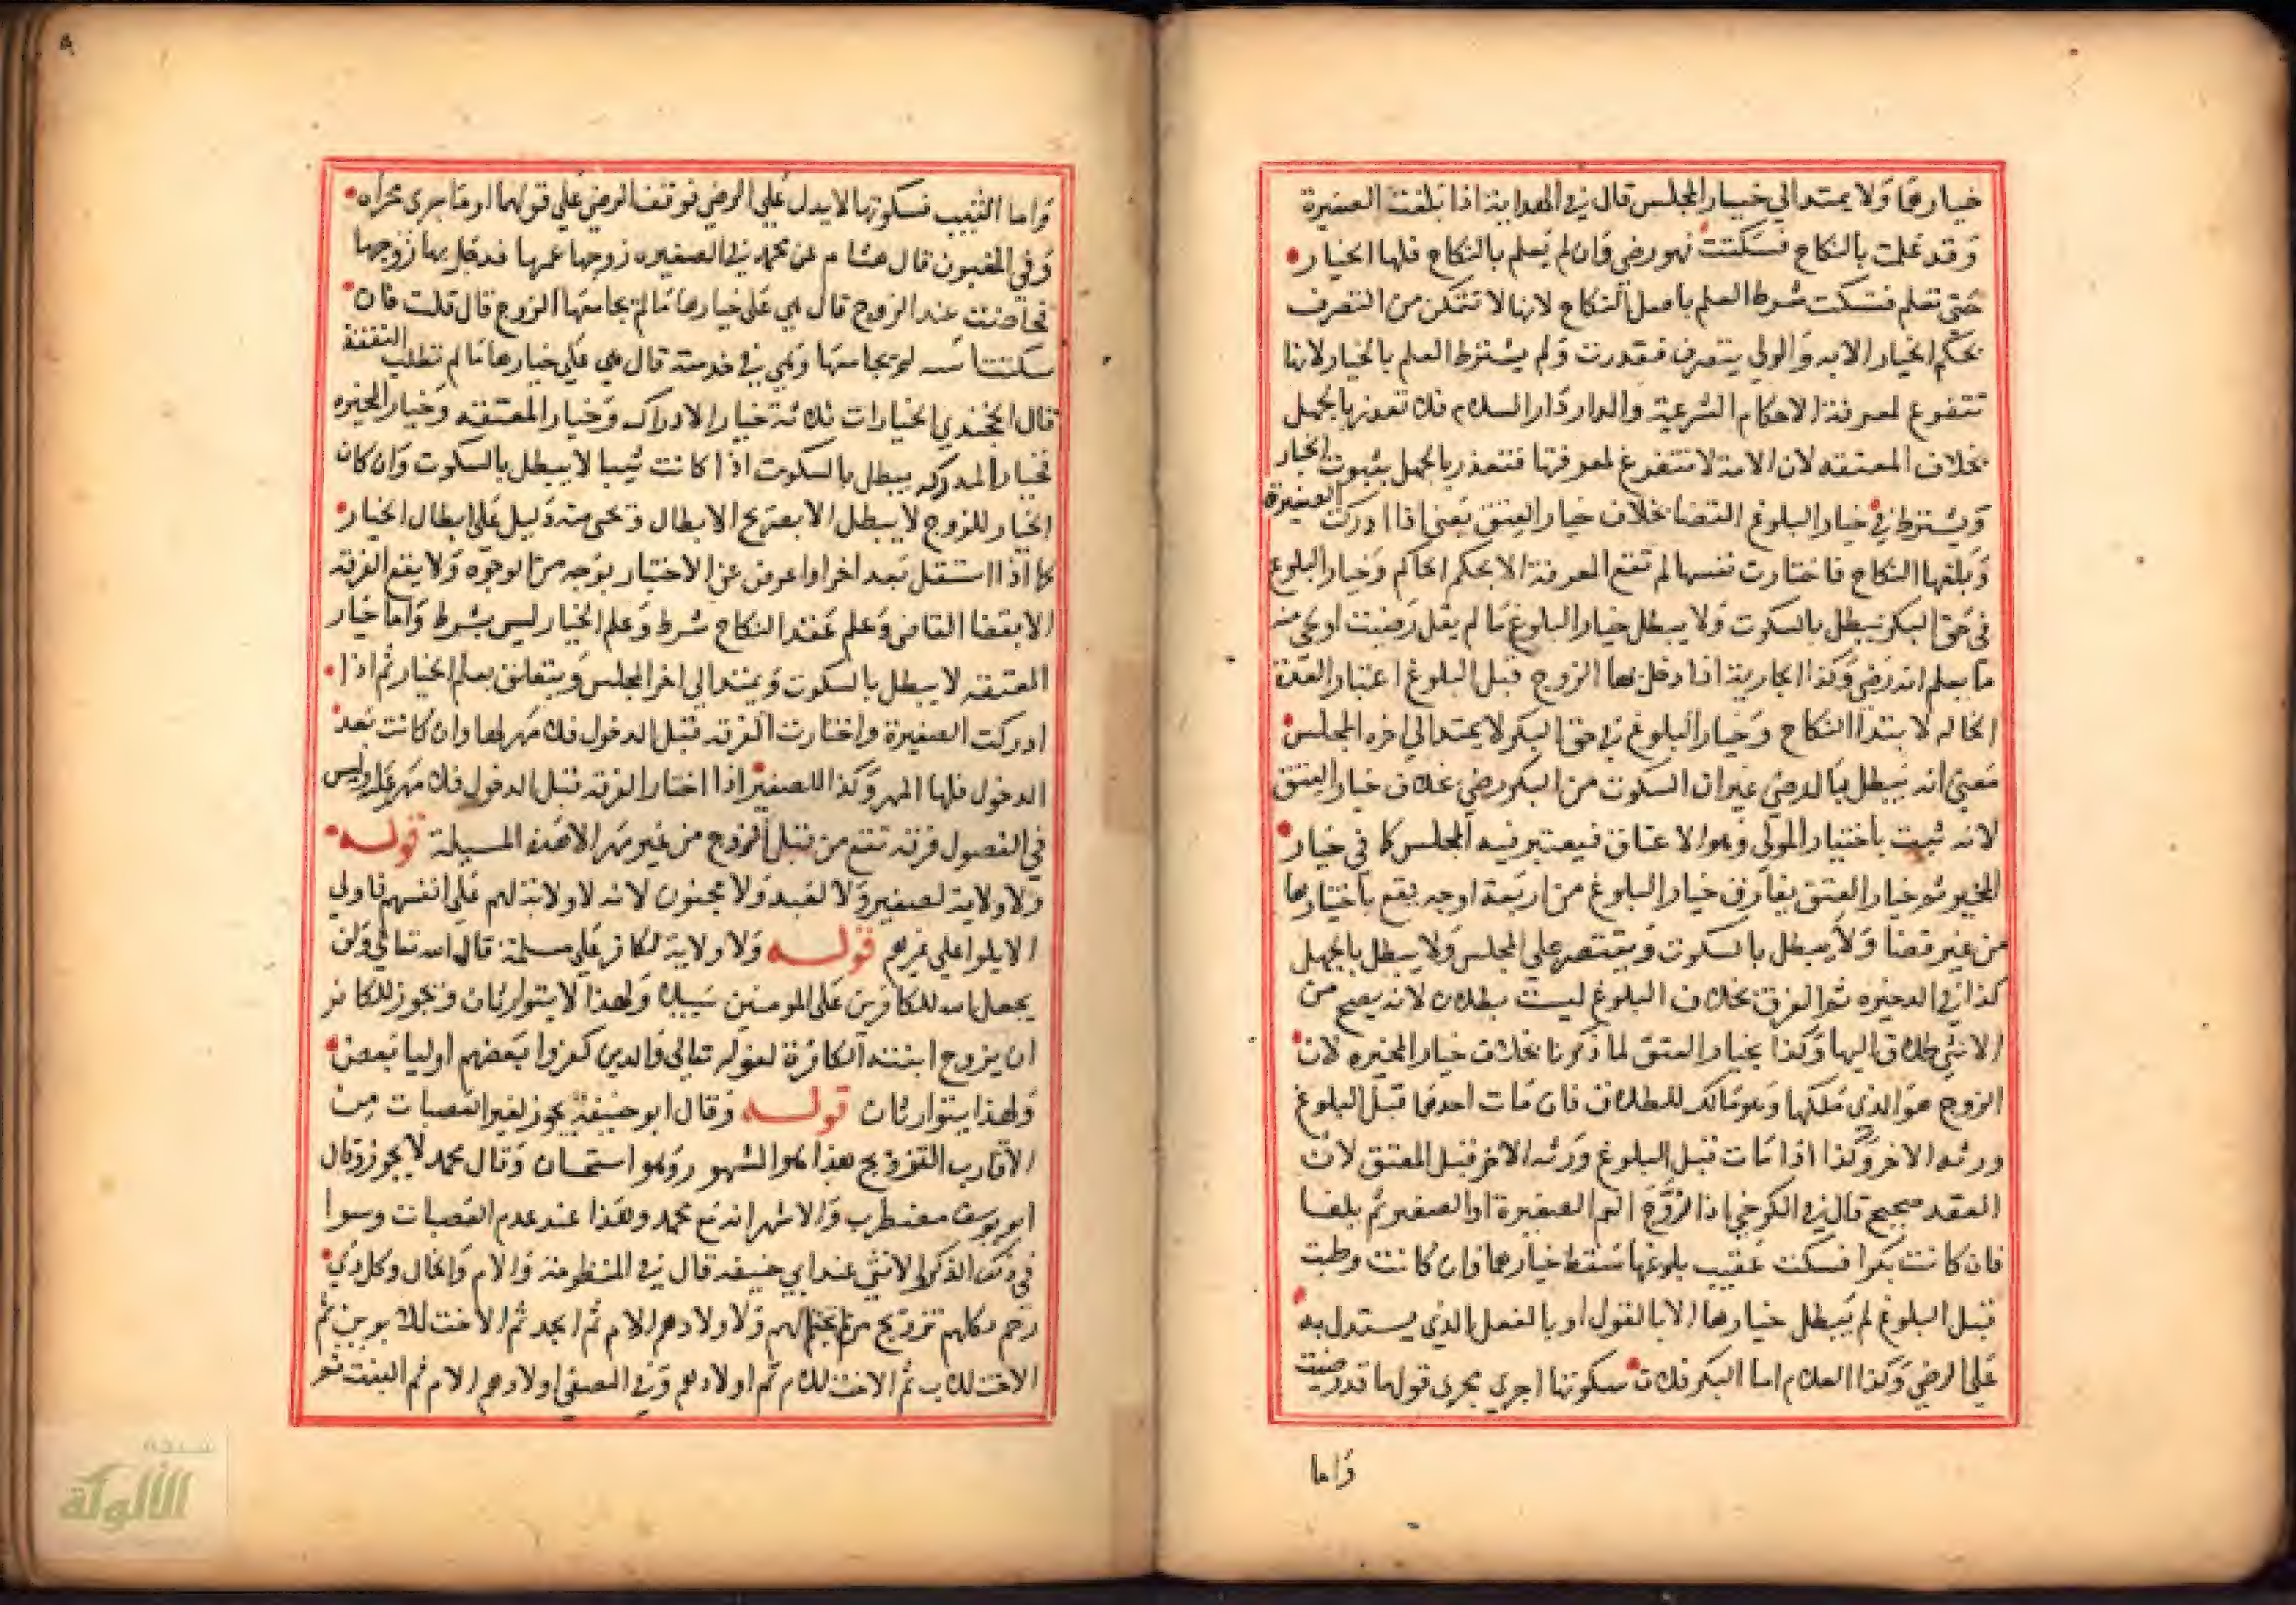 خيارهما ولا يمتد الي خيار المجلس قال في الهداية اذا بلغت الصغيرة
وقد علمت بالنكاح فسكتت فهو رضي وان لم يعلم بالنكاح فلها الخيار
حتي تعلم فتسكت شرط العلم باصل النكاح لانها لا تتمكن من التصرف
بحكم الخيار الا به والولي يتصرف فعذرت ولم يشترط العلم بالخيار لانها
تتفرغ لمعرفة الاحكام الشرعية والدار دار السلام فلا تعذر بالجهل
بخلاف المعتقه لان الامة لا تتفرغ لمعرفتها فتعذر بالجهل بثبوت الخيار
ويشترط في خيار البلوغ القضا بخلاف خيار العتق يعني اذا ادركت الصغيرة
وبلغها النكاح فاختارت نفسها لم تقع المعرفة الا بحكم الحاكم وخيار البلوغ
في حق البكر يبطل بالسكوت ولا يبطل خيار البلوغ ما لم يقل رضيت او يجي منه
ما يعلم انه رضي وكذا الجارية اذا دخل بها الزوج قبل البلوغ اعتبار العدة
الحاله لابتدا النكاح وخيار البلوغ في حق البكر لا يمتد الي اخره المجلس
معني انه يبطل بالرضي غير ان السكوت من البكر رضي بخلاف خيار العتق
لانه ثبت باختيار المولي وهو الاعتاق فيعتبر فيه المجلس كما في خيار
المخير ثم خيار العتق يفارق خيار البلوغ من اربعة اوجه يقع باختيارها
من غير قضا ولا يبطل بالسكوت ويقتصر علي المجلس ولا يبطل بالجهل
كذا في الدخيره ثم الفرق بخلاف البلوغ ليست بطلاق لانه يصح من
الانثي طلاق اليها وكذا بخيار العتق لما ذكرنا بخلاف خيار المخيره لان
الزوج هو الذي ملكها وهو مالك للطلاق فان مات احدهما قبل البلوغ
ورثه الاخر وكذا اذا مات قبل البلوغ ورثه الاخر قبل المعتق لان
العقد صحيح قال في الكرخي اذا زوج العم الصغيرة او الصغير ثم بلغا
فان كانت بكرا فسكت عقيب بلوغها سقط خيارها وان كانت وطيت
قبل البلوغ لم يبطل خيارها الا بالقول او بالفعل الذي يستدل به
علي الرضي وكذا الغلام اما البكر فلان سكوتها اجري مجري قولها قد رضيت
واما
واما الثيب فسكوتها لا يدل علي الرضي فوقف الرضي علي قولها او ما جري مجراه
وفي العيون قال هشام عن محمد في الصغيره زوجها عمها فدخل بها زوجها
فحاضت عند الزوج قال هي علي خيارها ما لم يجامعها الزوج قال قلت فان
سكتت سنه لم يجامعها وهي في خدمته قال هي علي خيارها ما لم تطلب النفقة
قال الخجندي الخيارات ثلاثة خيار الادراك وخيار المعتقه وخيار المخيره
فخيار المدركه يبطل بالسكوت اذا كانت ثيبا لا يبطل بالسكوت وان كان
الخيار للزوج لا يبطل الا بصريح الابطال وتجي منه دليل علي ابطال الخيار
كما اذا اشتغل بعد اخر او اعرض عن الاختيار بوجه من الوجوه ولا يقع الفرقه
الا بقضا القاضي وعلم عقد النكاح شرط وعلم الخيار ليس بشرط واما خيار
المعتقه لا يبطل بالسكوت ويمتد الي اخر المجلس ويتعلق بعلم الخيار ثم اذا
ادركت الصغيرة واختارت الفرقه قبل الدخول فلا مهر لها وان كانت بعد
الدخول فلها المهر وكذا الصغير اذا اختار الفرقه قبل الدخول فلا مهر عليه وليس
في الفصول فرقه تقع من قبل الزوج من غير مهر الا هذه المسيلة قوله
ولا ولاية لصغير ولا لعبد ولا مجنون لانه لا ولاية لهم علي انفسهم فاولي
الا يلوا علي غيرهم قوله ولا ولاية لكافر علي مسلمة قال الله تعالي ولن
يجعل الله للكافرين علي المومنين سبيلا ولهذا لا يتوارثان ويجوز للكافر
ان يزوج ابنته الكافرة لقوله تعالي والدين كفروا بعضهم اوليا بعض
ولهذا يتوارثان قوله وقال ابو حنيفة يجوز لغير العصبات من
الاقارب التزويج هذا هو المشهور وهو استحسان وقال محمد لا يجوز وقال
ابو يوسف مضطرب والاشهر انه مع محمد وهذا عند عدم العصبات وسوا
في ذلك الذكر والانثي عند ابي حنيفه قال في المنظومة والام والخال وكل ذي
رحم لكلهم تزويج من لهم ولاولادهم الام ثم الجد ثم الاخت للابوين ثم
الاخت للاب ثم الاخت للام ثم اولادهم وفي المصفي اولادهم الام ثم البنت ثم
شبكة
الألوكة